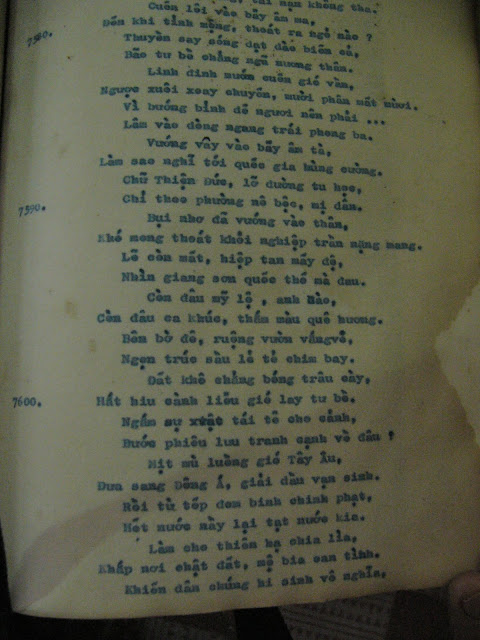 tai nạn không tha.
Cuốn lôi vào bẫy âm ma,
Đến khi tỉnh mộng, thoát ra ngõ nào ?
7580. Thuyền say sóng dạt đảo biển cả,
Bão tư bề chẳng ngã nương thân.
Linh đinh mướn cuốn gió vần,
Ngược xuôi xoay chuyển, mười phần mất mười.
Vì bướng bỉnh để ngươi nên phải ...
Lâm vào dòng ngang trái phong ba.
Vướng vây vào bẫy âm tà,
Làm sao nghĩ tới quốc gia hùng cường.
Chữ Thiện Đức, lỡ đường tu học,
Chỉ theo phường nô bộc, mị dân.
7590. Bụi nhơ đã vướng vào thân,
Khó mong thoát khỏi nghiệp trần nặng mang.
Lẽ còn mất, hiệp tan mấy độ,
Nhìn giang sơn quốc thổ mà đau.
Còn đâu mỹ lộ , anh hào,
Còn đâu ca khúc, thắm màu quê hương.
Bên bờ đê, ruộng vườn vắng vẻ,
Ngọn trúc sầu lẻ tẻ chim bay.
Đất khô chẳng bóng trâu cày,
7600. Hắt hiu cành liễu gió lay tư bề.
Ngắm sự xuật tái tê cho cảnh,
Bước phiêu lưu tranh cạnh về đâu ?
Mịt mù luồng gió Tây Âu,
Đưa sang Đông Á, giải dầu vạn sinh.
Rồi từ tốp đem binh chinh phạt,
Hết nước này lại tạt nước kia.
Làm cho thiên hạ chia lìa,
Khắp nơi chật đất, mộ bia san tỉnh.
Khiến dân chúng hi sinh vô nghĩa,